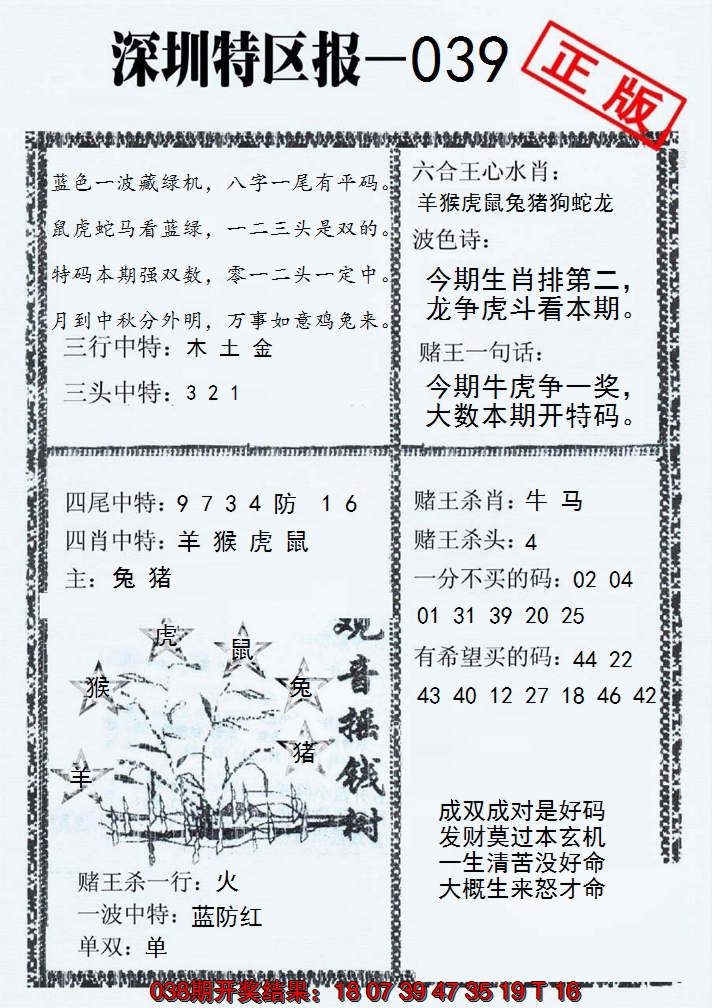 深圳特区报—039
正版
蓝色一波藏绿机，八字一尾有平码。
鼠虎蛇马看蓝绿，一二三头是双的。
特码本期强双数，零一二头一定中。
月到中秋分外明，万事如意鸡兔来。
三行中特：木 土 金
三头中特：3 2 1
六合王心水肖：
羊猴虎鼠兔猪狗蛇龙
波色诗：
今期生肖排第二，
龙争虎斗看本期。
赌王一句话：
今期牛虎争一奖，
大数本期开特码。
四尾中特：9 7 3 4 防 1 6
四肖中特：羊 猴 虎 鼠
主：兔 猪
虎
鼠
猴
兔
猪
羊
观音摇钱树
赌王杀一行：火
一波中特：蓝防红
单双：单
赌王杀肖：牛 马
赌王杀头：4
一分不买的码：02 04
01 31 39 20 25
有希望买的码：44 22
43 40 12 27 18 46 42
成双成对是好码
发财莫过本玄机
一生清苦没好命
大概生来怒才命
038期开奖结果：18 07 39 47 35 19 T 16